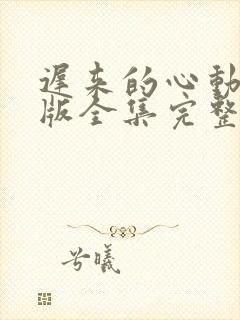 遲来的心動
版全集完整
兮曦